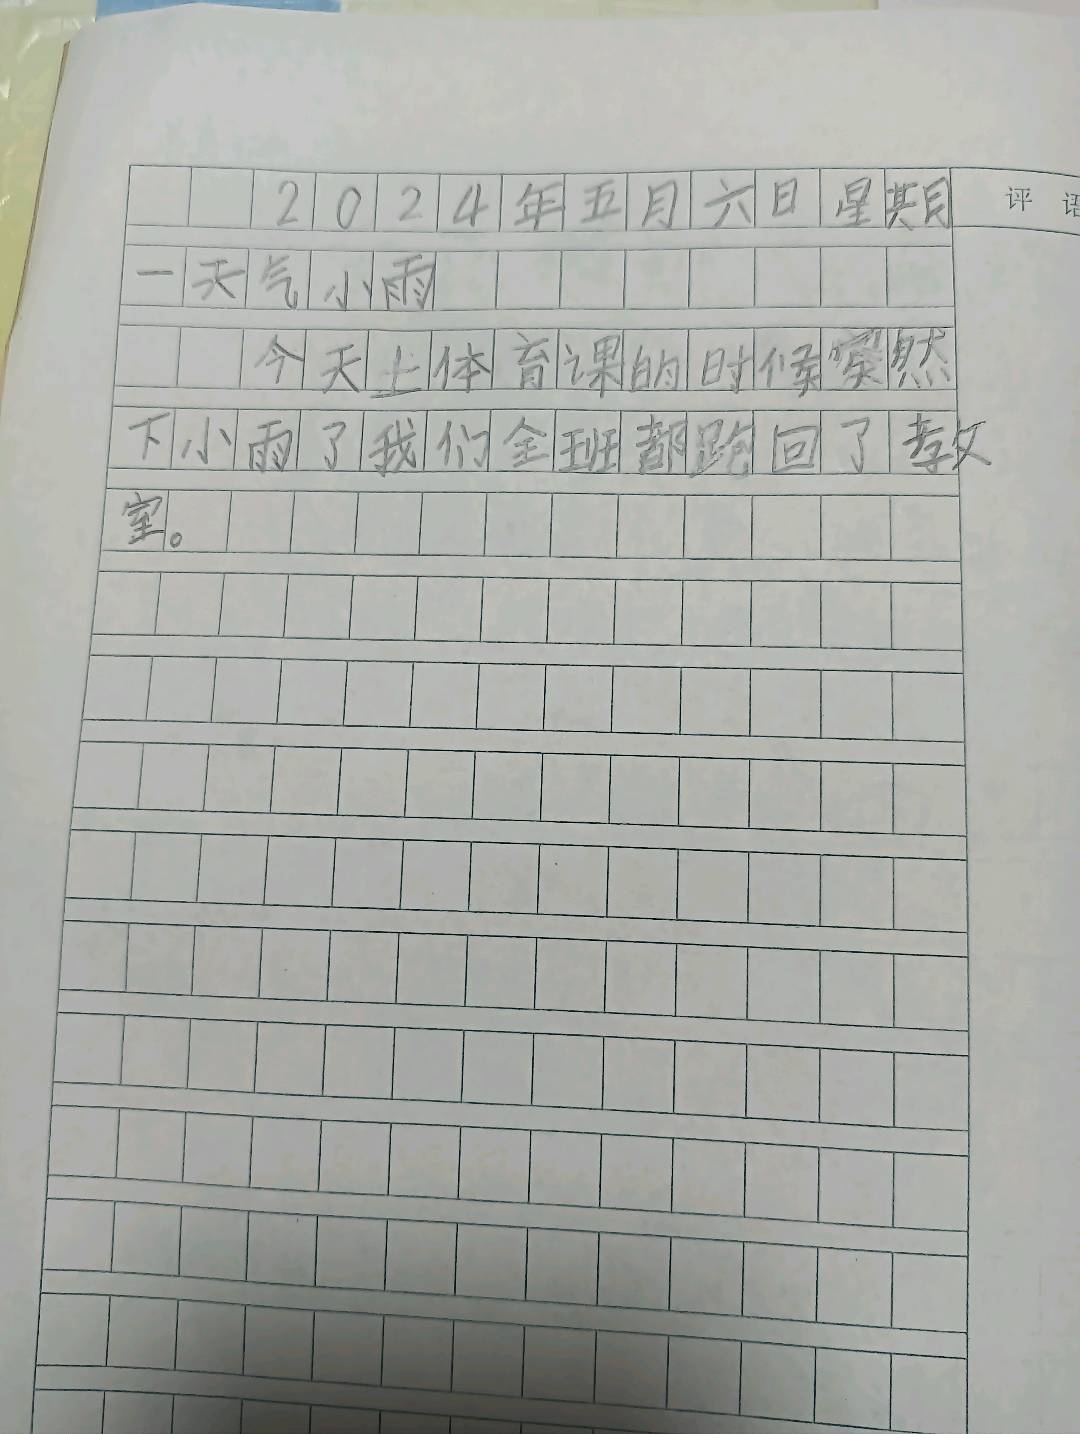 2024年五月六日星期
评语
一天气小雨
今天上体育课的时候突然
下小雨了我们全班都跑回了教
室。